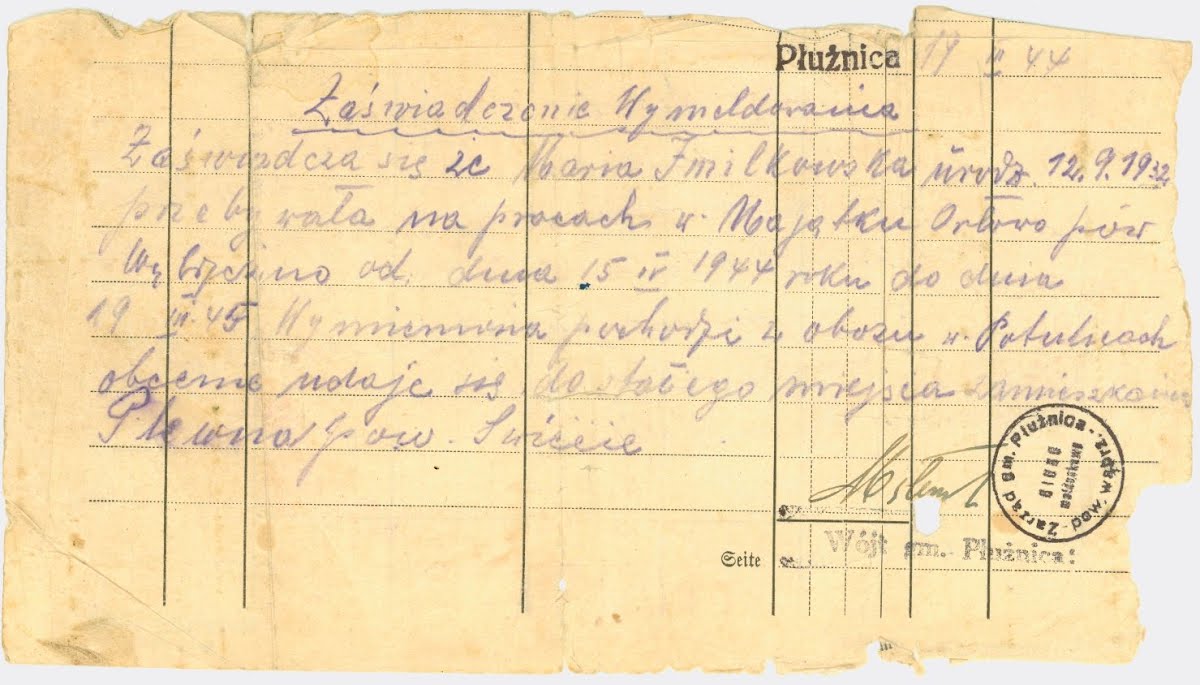 Płużnica 19 III 44
Zaświadczenie Wymeldowania
Zaświadcza się że Maria Imilkowska urodz. 12.9.1932
przebywała na pracach w. Majątku Orłowo pow
Wąbrzeźno od. dnia 15 IV 1944 roku do dnia
19 III. 45 Wymieniona pochodzi z obozu w. Potulicach
obecnie udaje się do stałego miejsca zamieszkania
Plewno pow. Świecie
Zarząd gm. Płużnica - pow. Wąbrz.
Seite
Wójt gm. Płużnica: